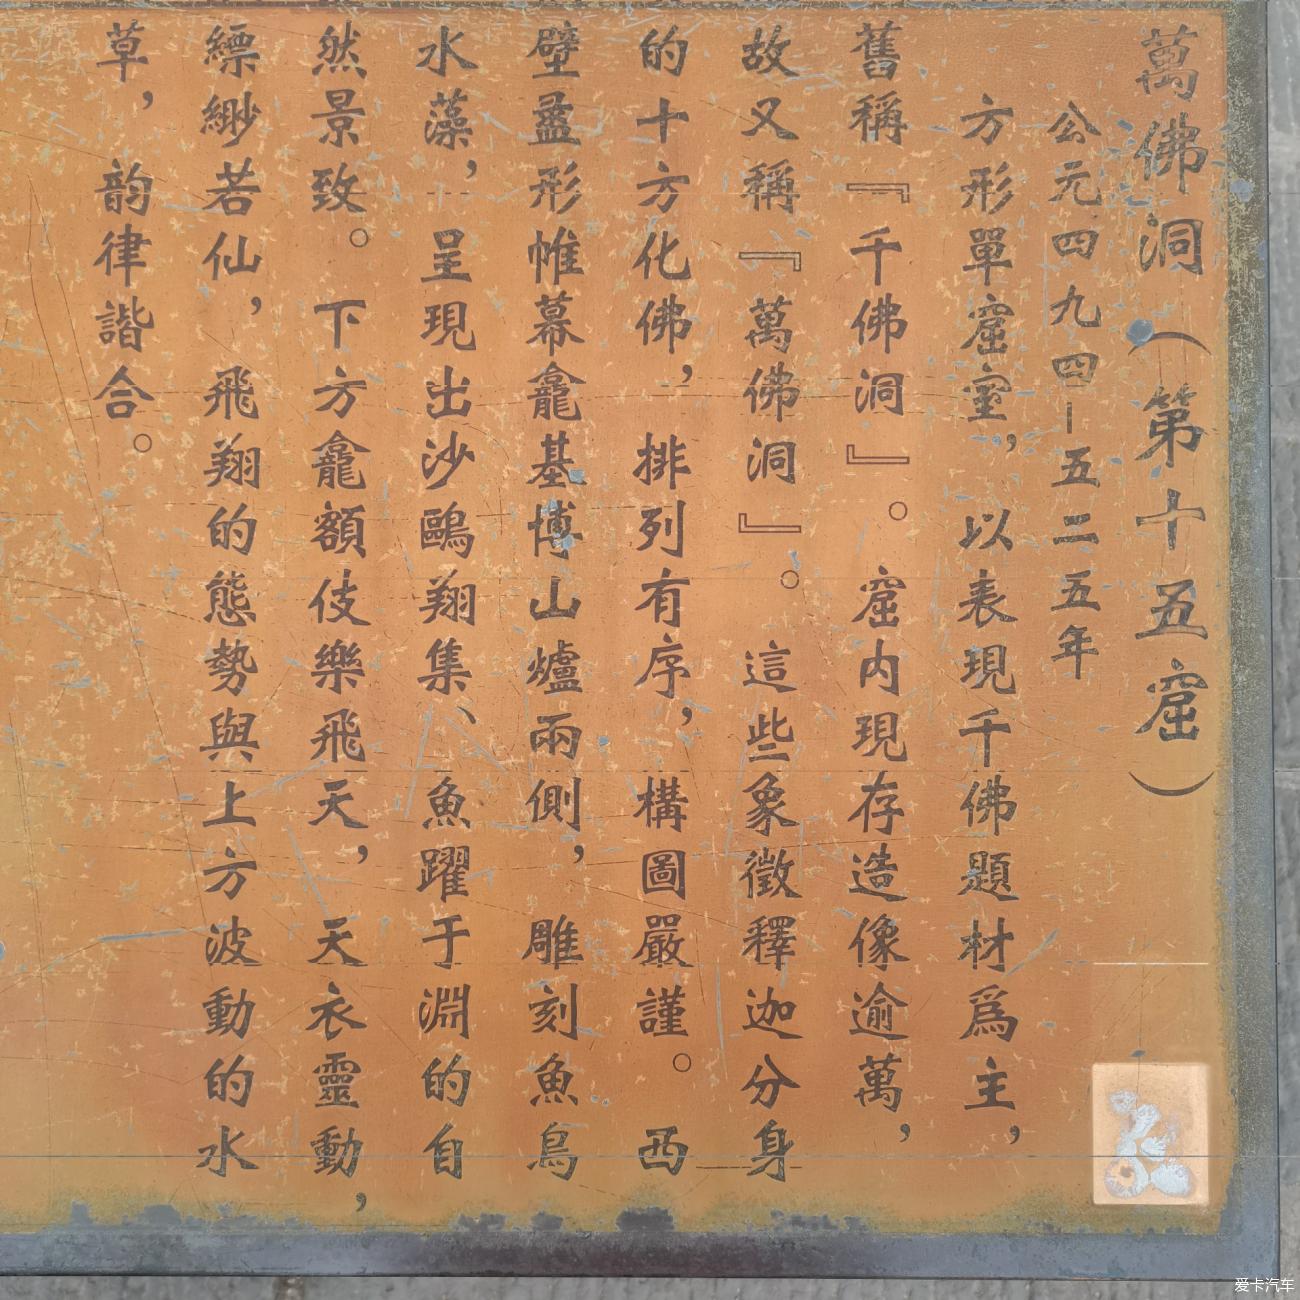 萬佛洞（第十五窟）
公元四九四—五二五年
方形單窟室，以表現千佛題材爲主，
舊稱『千佛洞』。窟内現存造像逾萬，
故又稱『萬佛洞』。這些象徵釋迦分身
的十方化佛，排列有序，構圖嚴謹。西
壁盝形帷幕龕基博山爐兩側，雕刻魚鳥
水藻，呈現出沙鷗翔集、魚躍于淵的自
然景致。下方龕額伎樂飛天，天衣靈動，
縹緲若仙，飛翔的態勢與上方波動的水
草，韵律諧合。
爱卡汽车